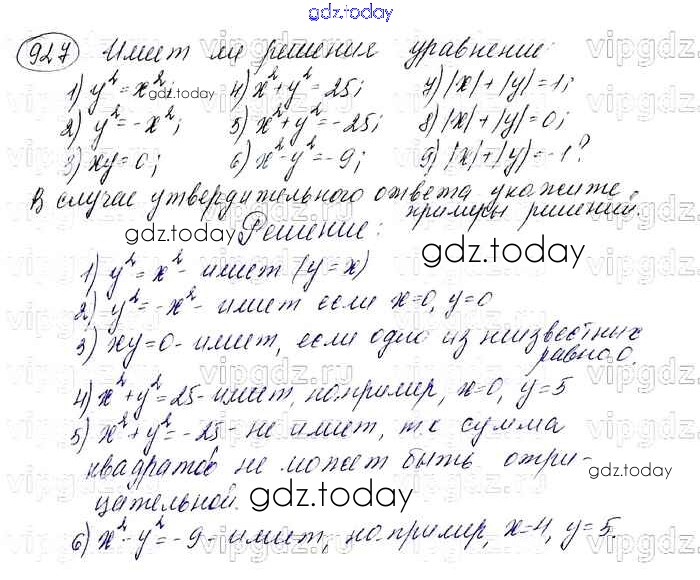 gdz.today
927 Имеет ли решения уравнение:
1) y²=x²; 4) x²+y²=25; 7) |x|+|y|=1;
gdz.today
2) y²=-x²; 5) x²+y²=-25; 8) |x|+|y|=0;
3) xy=0; 6) x²-y²=-9; 9) |x|+|y|=-1?
В случае утвердительного ответа укажите
примеры решений.
gdz.today Решение: gdz.today
1) y²=x² - имеет (y=x)
2) y²=-x² - имеет если x=0, y=0
3) xy=0 - имеет, если одно из неизвестных
равно 0.
4) x²+y²=25 - имеет, например, x=0, y=5
5) x²+y²=-25 - не имеет, т.к сумма
квадратов не может быть отри-
gdz.today
цательной.
gdz.today
6) x²-y²=-9 - имеет, например, x=4, y=5.